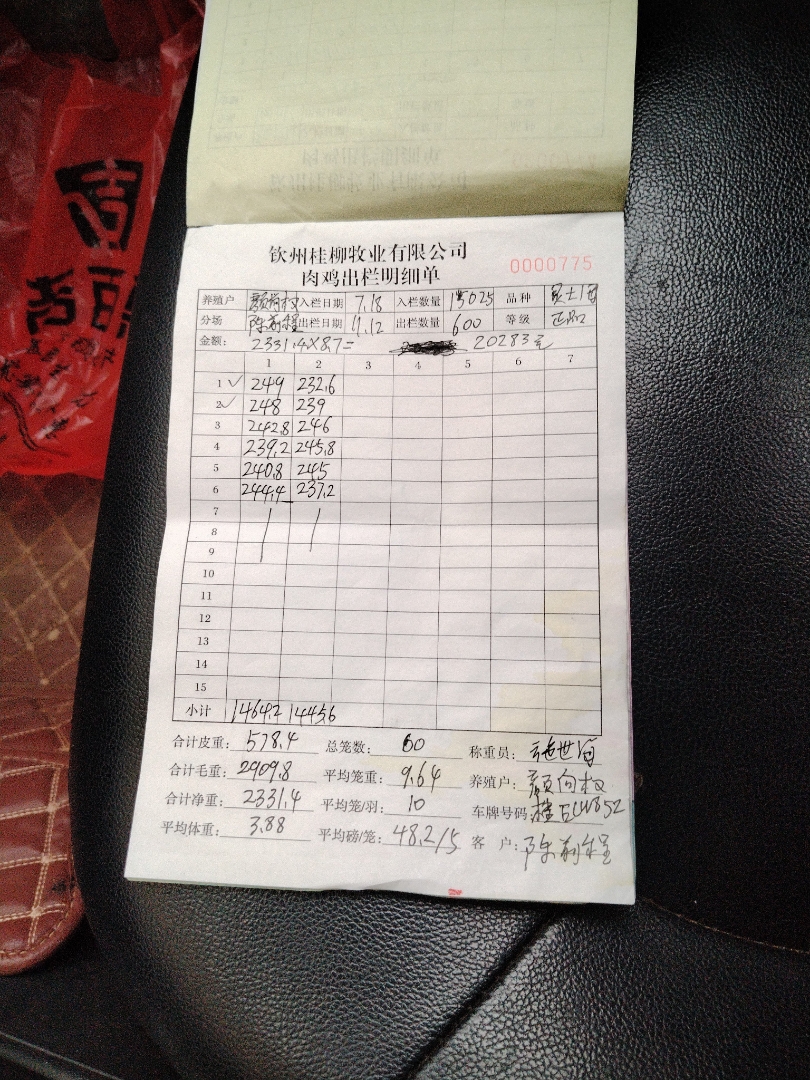 钦州桂柳牧业有限公司
肉鸡出栏明细单
0000775
养殖户 入栏日期 7.18 入栏数量 15025 品种
分场 出栏日期 11.12 出栏数量 600 等级 正品
金额: 2331.4×8.7= 20283元
1 2 3 4 5 6 7
1 249 232.6
2 248 239
3 242.8 246
4 239.2 245.8
5 240.8 245
6 244.4 237.2
7
8
9
10
11
12
13
14
15
小计 1464.2 1445.6
合计皮重: 578.4 总笼数: 60 称重员:
合计毛重: 2909.8 平均笼重: 9.64 养殖户: 颜向权
合计净重: 2331.4 平均笼/羽: 10 车牌号码:
平均体重: 3.88 平均磅/笼: 48.2/5 客 户: